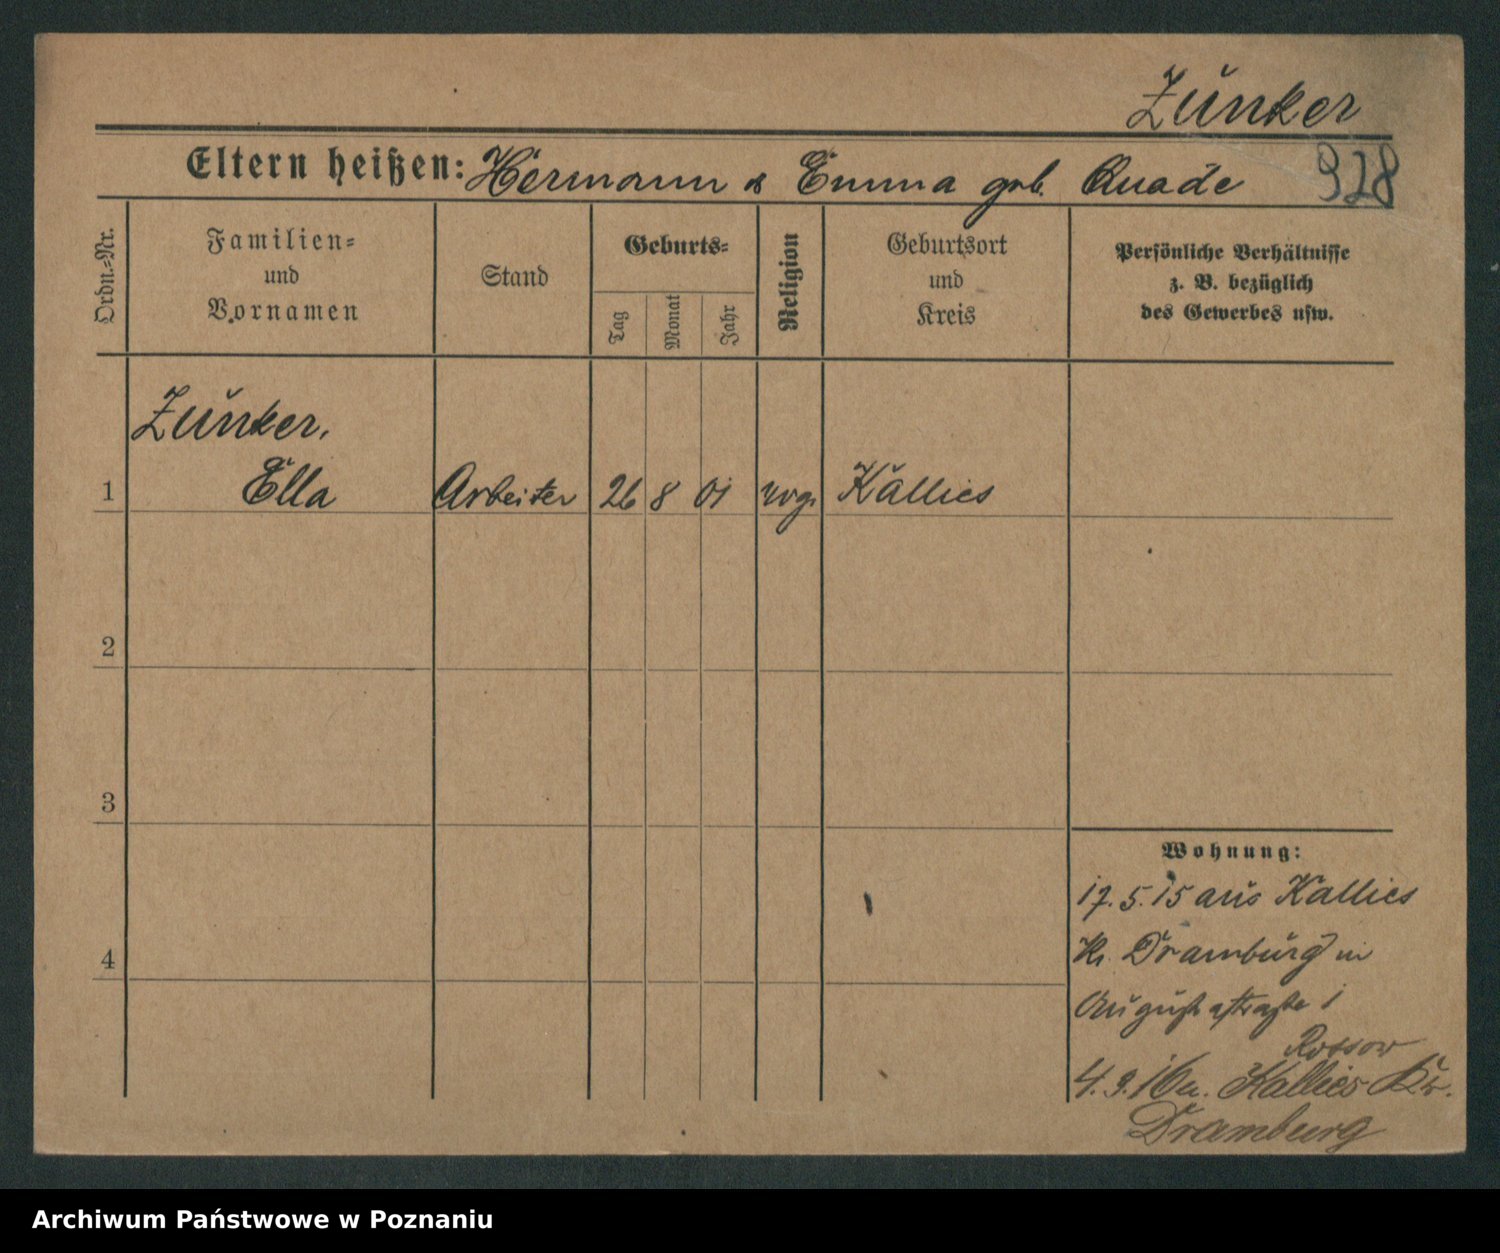 Zunker
Eltern heißen: Hermann & Emma geb. Quade 928
Ordn.-Nr.
Familien-
und
Vornamen
Stand
Geburts-
Tag
Monat
Jahr
Religion
Geburtsort
und
Kreis
Persönliche Verhältnisse
z. B. bezüglich
des Gewerbes usw.
Zunker,
1 Ella Arbeiter 26 8 01 evg. Kallies
2
3
4
Wohnung:
17. 5. 15 aus Kallies
Kr. Dramburg in
Augustastraße 1
Rossow
4. 9. 16 n. Kallies Kr.
Dramburg
Archiwum Państwowe w Poznaniu